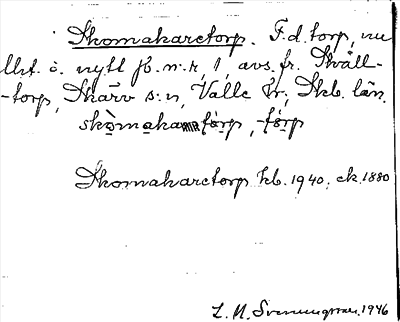 Skomakaretorp. F.d. torp, nu
utl. o. nytt jb.n:r, 1, avs. fr. Skåll-
-torp, Skärv s:n, Valle hr; Skb. län.
skòmaka torp, -tórp
Skomakaretorp kb. 1940, ek. 1880
L. M. Svenungsson. 1946